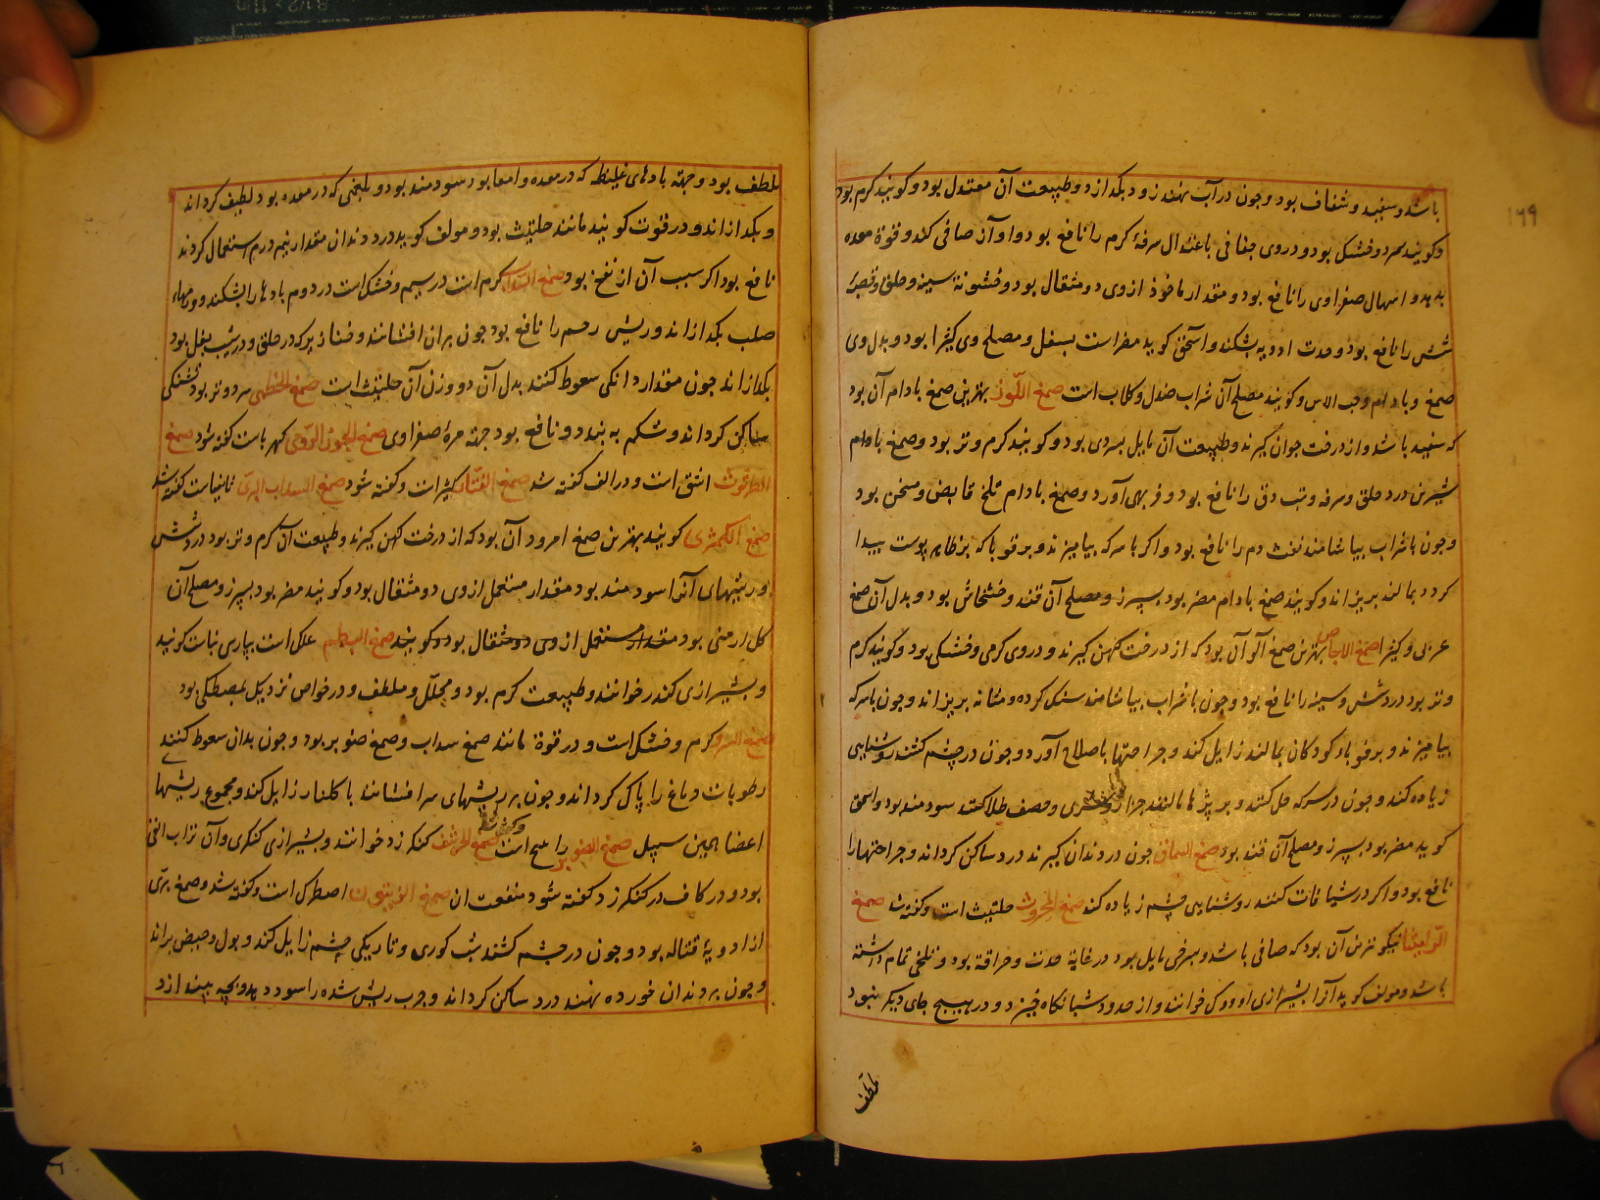 ۱۶۹
باشد و سفید و شفاف بود و چون در آب نهند زود بکدازد و طبیعت آن معتدل بود و کویند کرم بود
و کویند سرد و خشک بود و در وی جفافی باعتدال سرفهٔ کرم را نافع بود و آواز صافی کند و قوة معده
بدهد و اسهال صفراوی را نافع بود و مقدار ماخوذ از وی دو مثقال بود و خشونة سینه و حلق و قصبهٔ
شش را نافع بود و حدت ادویه بشکند و اسحق کوید مضر است بسفل و مصلح وی کثیرا بود و بدل وی
صمغ بادام و حب الاس و کویند مصلح آن شراب صندل و کلاب است صمغ اللوز بهترین صمغ بادام آن بود
که سفید باشد و از درخت جوان کیرند و طبیعت آن مایل بسردی بود و کویند کرم و تر بود و صمغ بادام
شیرین درد حلق و سرفه و تب دق را نافع بود و فربهی آورد و صمغ بادام تلخ قابض و مسخن بود
و چون با شراب بیاشامند نفث دم را نافع بود و اکر با سرکه بیامیزند و بر قوبا که بر ظاهر پوست پیدا
کردد بمالند بریزاند و کویند صمغ بادام مضر بود بسپرز و مصلح آن قند و خشخاش بود و بدل آن صمغ
عربی و کثیرا صمغ الاجاص بهترین صمغ آلو آن بود که از درخت کهن کیرند و در وی کرمی و خشکی بود و کویند کرم
و تر بود درد شش و سینه را نافع بود و چون با شراب بیاشامند سنک کرده و مثانه بریزاند و چون با سرکه
بیامیزند و بر قوباء کودکان بمالند زایل کند و جراحتها باصلاح آورد و چون در چشم کشند روشنایی
زیاده کند و چون در سرکه حل کنند و بر پژها مالند و صف طلا کنند سودمند بود و اسحق
کوید مضر بود بسپرز و مصلح آن قند بود صمغ السماق چون در دندان کیرند درد ساکن کرداند و جراحتها را
نافع بود و اکر در شیافات کنند روشنایی چشم زیاده کند صمغ المحروث حلتیث است و کفته شد صمغ
نیکوترین آن بود که صافی باشد و بسرخی مایل بود در غایة حدت و حراقة بود و تلخی تمام داشته
باشد و مولف کوید آنرا بشیرازی خوانند و از حدود شبانکاه خیزد و در هیچ جای دیکر نبود
ملطف
ملطف بود و جهة بادهای غلیظ که در معده و امعا بود سودمند بود و بلغمی که در معده بود لطیف کرداند
و بکدازاند و در قوت کویند مانند حلتیث بود و مولف کوید درد دندان مقدار نیم درم استعمال کردند
نافع بود اکر سبب آن از نفخ بود صمغ السداب کرم است در سیم و خشک است در دوم بادها را بشکند و ورمهاء
صلب بکدازاند و ریش رحم را نافع بود چون بر آن افشانند و خنازیر که در حلق و در زیر بغل بود
بکدازاند چون مقدار دانکی سعوط کنند بدل آن دو وزن آن حلتیث است صمغ الخطمی سرد و تر بود تشنکی
ساکن کرداند و شکم به بندد و نافع بود جهة مرهٔ صفراوی صمغ الجوز الرومی کهرباست کفته شود صمغ
الطرثوث اشق است و در الف کفته شد صمغ القتاد کثیرا است و کفته شود صمغ السداب البری ثافیا است کفته شد
صمغ الکمثری کویند بهترین صمغ امرود آن بود که از درخت کهن کیرند و طبیعت آن کرم و تر بود درد شش
و ریشهای آنرا سودمند بود مقدار مستعمل از وی دو مثقال بود و کویند مضر بود بسپرز و مصلح آن
کل ارمنی بود مقدار مستعمل از وی دو مثقال بود و کویند صمغ البطم علک است بپارسی بناست کویند
و بشیرازی کندر خوانند و طبیعت کرم بود و محلل و ملطف و در خواص نزدیک بمصطکی بود
صمغ السرو کرم و خشک است و در قوة مانند صمغ سداب و صمغ صنوبر بود و چون بدان سعوط کنند
رطوبات دماغ را پاک کرداند و چون بر ریشهای سر افشانند با کلنار زایل کند و مجموع ریشها
اعضا همین سبیل صمغ الصنوبر است و کفته شد صمغ الحرشف کنکرزد خوانند و بشیرازی کنکری و آن تراب القی
بود و در کاف در کنکرزد کفته شود منفعت آن صمغ الزیتون اصطرک است و کفته شد و صمغ بری
از ادویهٔ قتاله بود و چون در چشم کشند شب کوری و تاریکی چشم زایل کند و بول و حیض براند
و چون بر دندان خورده نهند درد ساکن کرداند و جرب ریش شده را سود دهد و بچه بیندازد